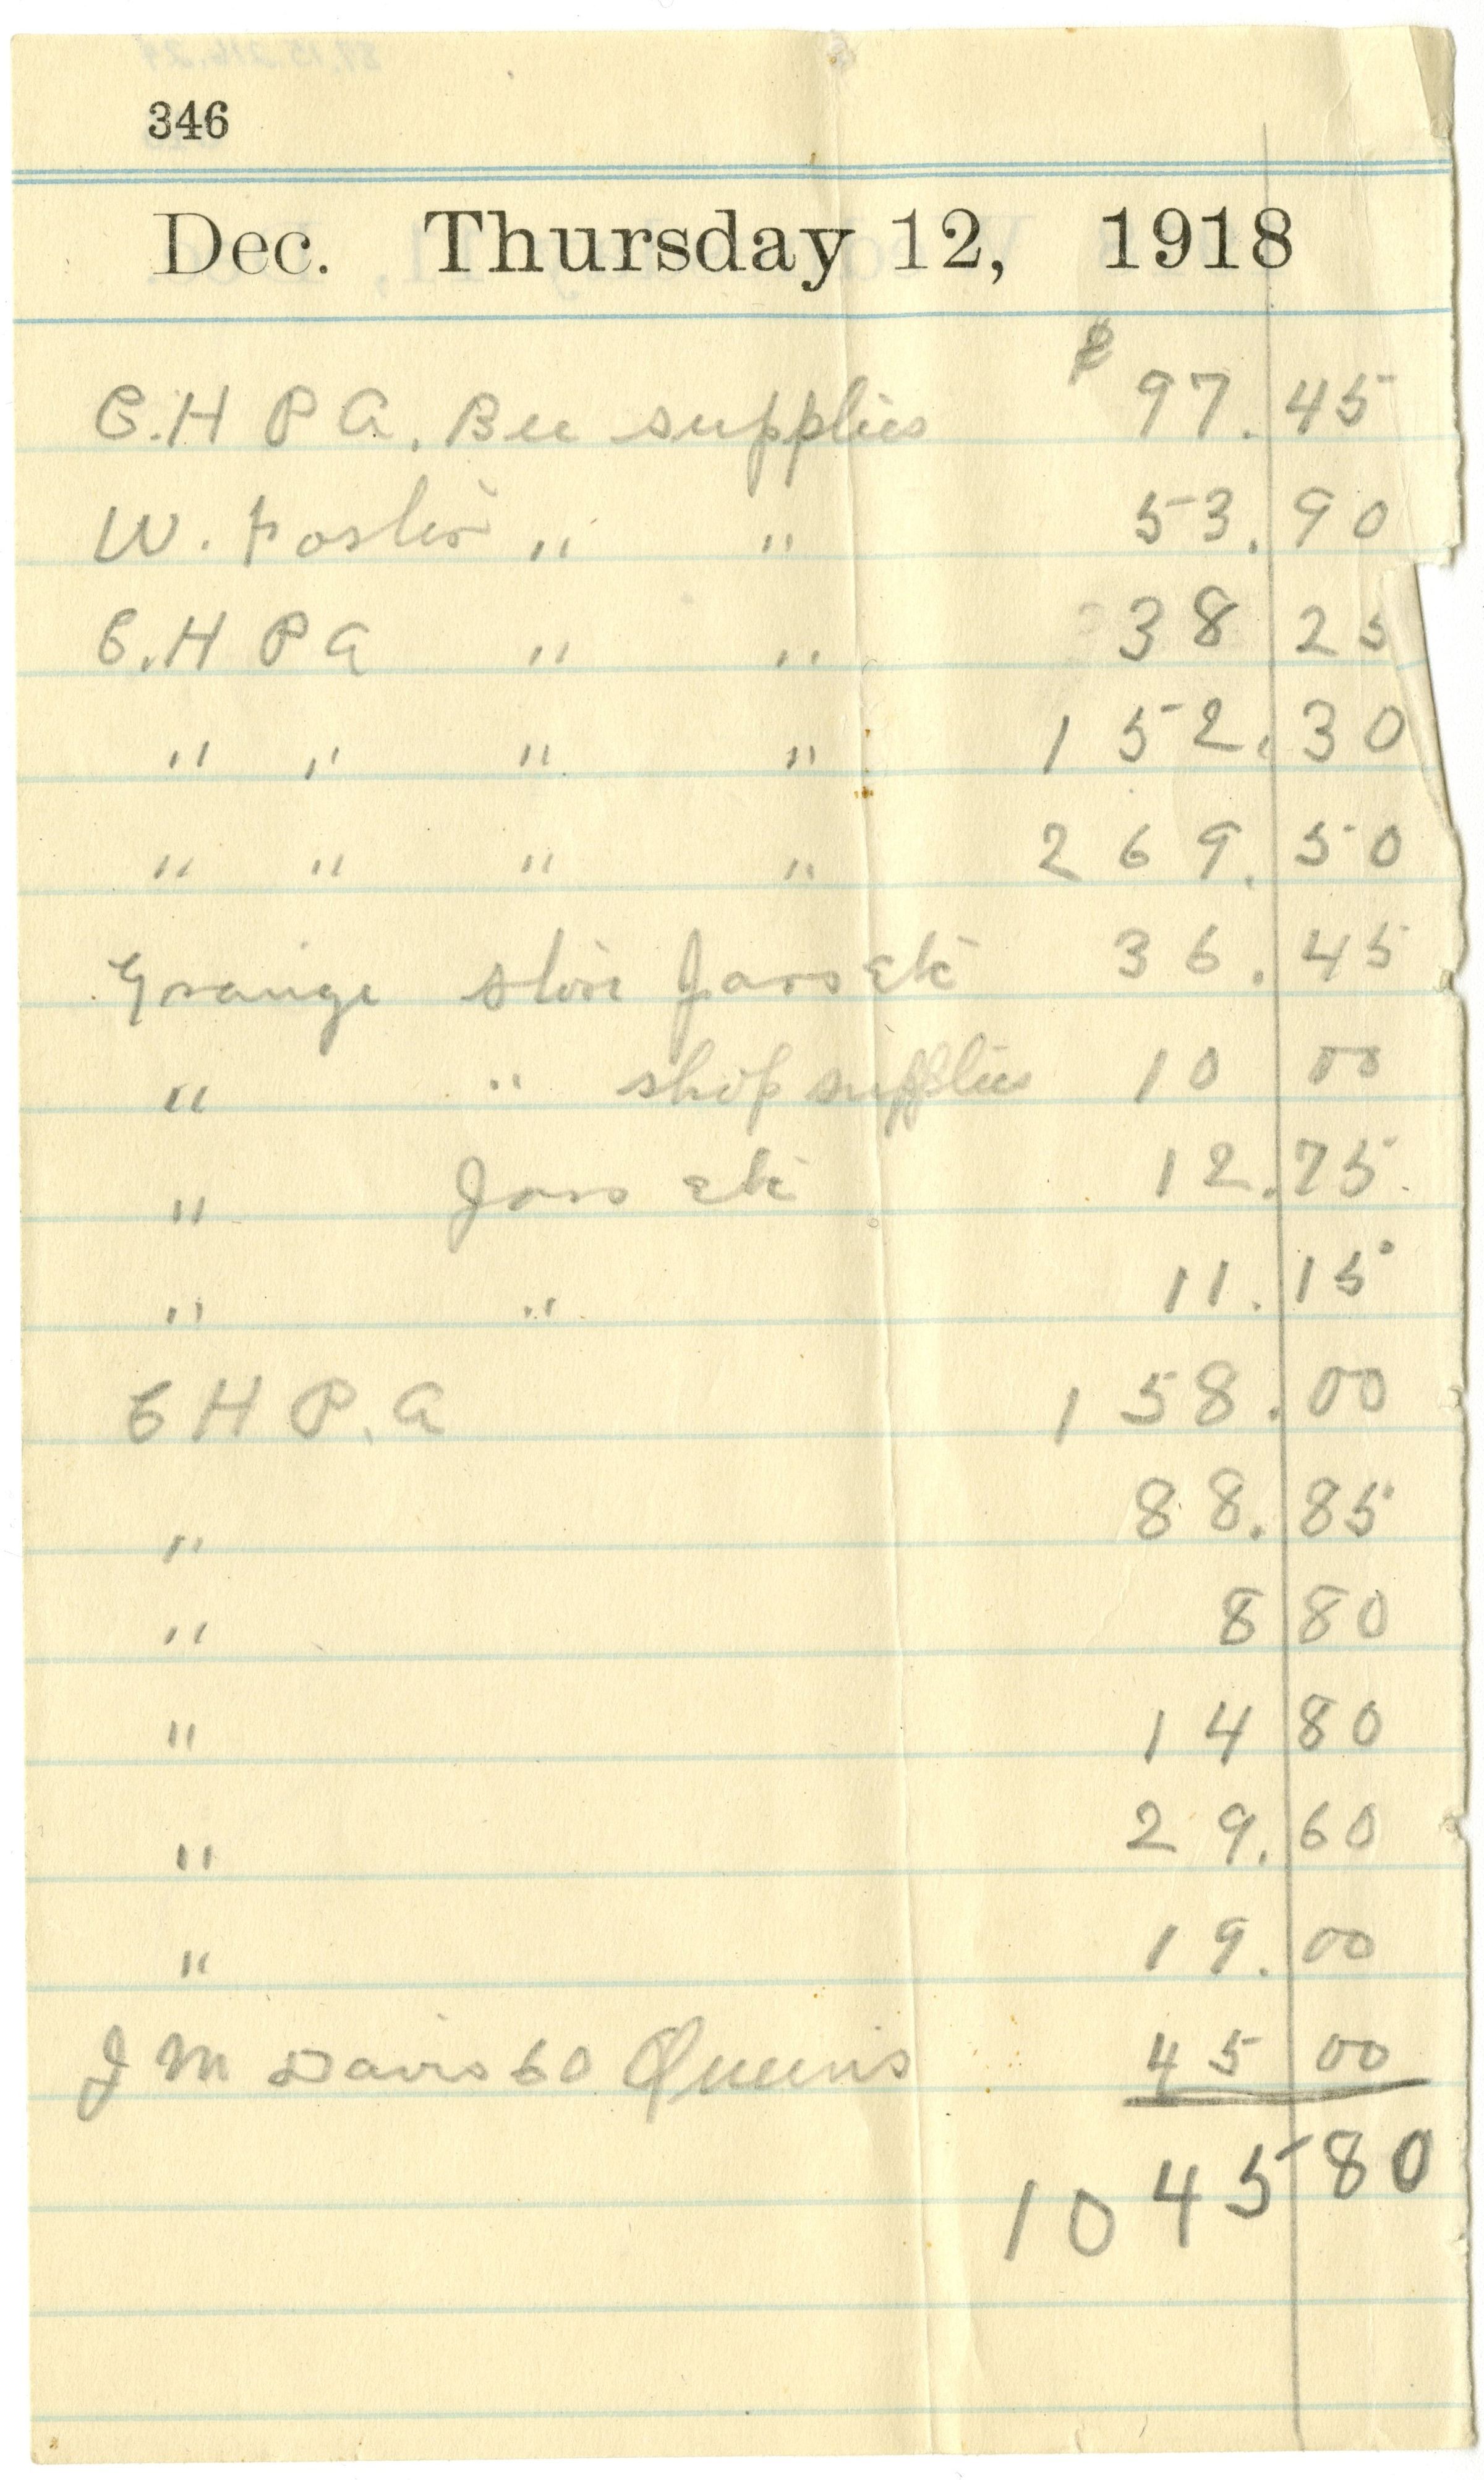 346
Dec. Thursday 12, 1918
C.H P A. Bee supplies $ 97.45
W. Foster " " 53.90
C.H P A " " 38 25
" " " " 152.30
" " " " 269.50
Grange store Jars Etc 36.45
" " shop supplies 10 00
" Jars etc 12.75
" " 11.15
C H P. A 158.00
" 88.85
" 8 80
" 14 80
" 29.60
" 19.00
J M Davis 60 Queens 45 00
1045 80